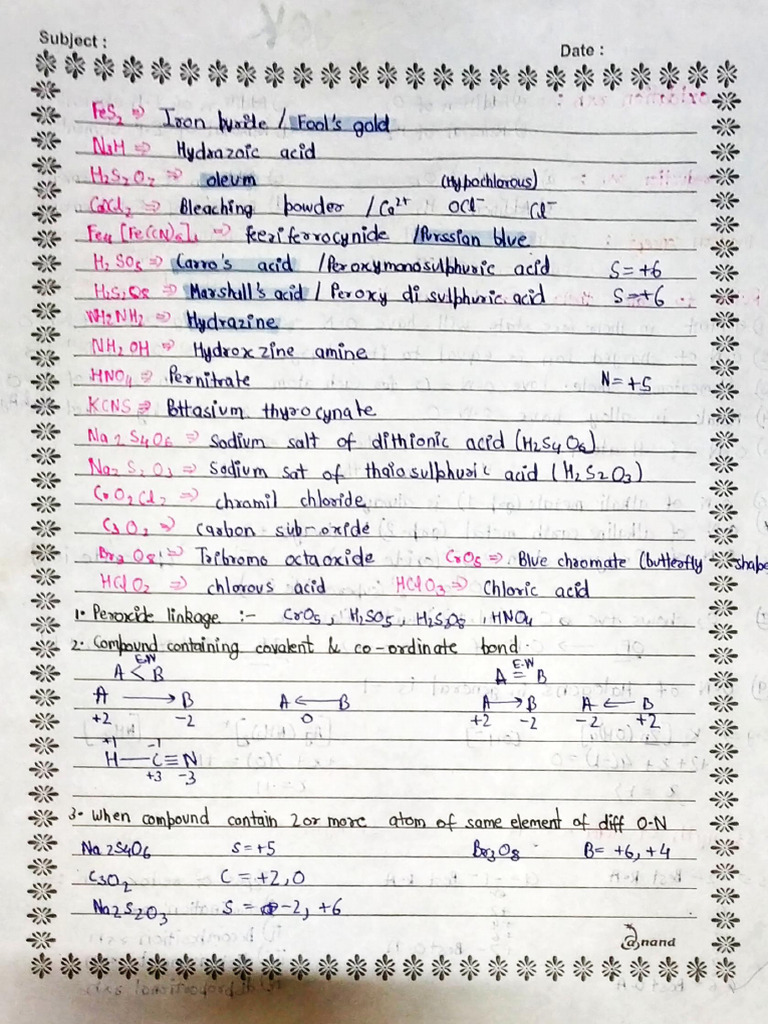 Subject :
Date :
FeS2 ⇒ Iron pyride / Fool's gold
N3H ⇒ Hydrazoic acid
H2S2O2 ⇒ oleum (Hypochlorous)
CaOCl2 ⇒ Bleaching powder / Ca2+ OCl- Cl-
Fe4 [Fe(CN)6]3 ⇒ feeriferrocynide / Purssian blue
H2SO5 ⇒ Carro's acid / Peroxymonosulphuric acid S=+6
H2S2O8 ⇒ Marshall's acid / Peroxy di sulphuric acid S=+6
NH2NH2 ⇒ Hydrazine
NH2OH ⇒ Hydroxzine amine
HNO4 ⇒ Pernitrate N=+5
KCNS ⇒ Pottasium thyrocynate
Na2S4O6 ⇒ Sodium salt of dithionic acid (H2S4O6)
Na2S2O3 ⇒ Sodium sat of thaiosulphuric acid (H2S2O3)
CrO2Cl2 ⇒ chromil chloride
C3O2 ⇒ carbon sub-oxide
Br3O8 ⇒ Tribromo octaoxide CrO5 ⇒ Blue chromate (butterfly shape
HClO2 ⇒ chlorous acid HClO3 ⇒ Chloric acid
1. Peroxide linkage :- CrO5, H2SO5, H2S2O8, HNO4
2. Compound containing covalent & co-ordinate bond.
E.N E.N
A < B A = B
A → B A ← B A → B A ← B
+2 -2 0 +2 -2 -2 +2
+1 -1
H—C≡N
+3 -3
3. When compound contain 2 or more atom of same element of diff O-N
Na2S4O6 S=+5 Br3O8 B=+6,+4
C3O2 C=+2,0
Na2S2O3 S = -2, +6
anand